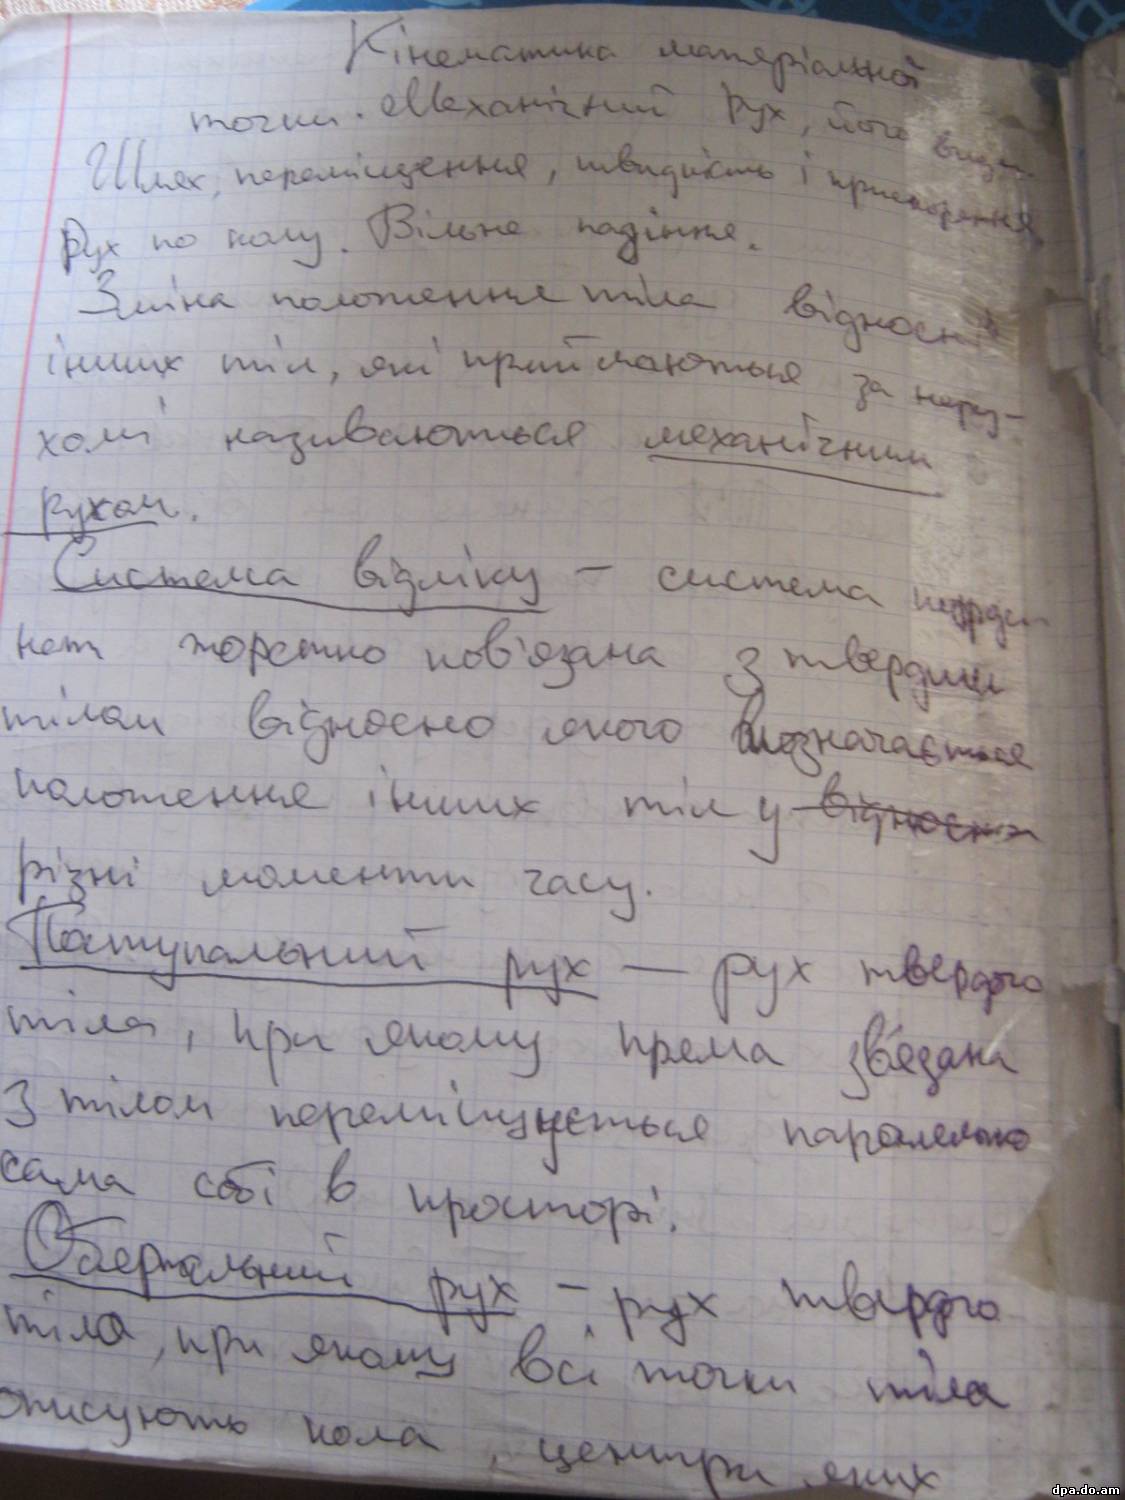 Кінематика матеріальної
точки. Механічний рух, його види.
Шлях, переміщення, швидкість і прискорення
Рух по колу. Вільне падіння.
Зміна положення тіла відносно
інших тіл, які приймаються за неру-
хомі називаються механічним
рухом.
Система відліку – система коорди
нат жорстко пов'язана з твердим
тілом відносно якого визначається
положення інших тіл у відносно
різні моменти часу.
Поступальний рух — рух твердого
тіла, при якому пряма зв'язана
з тілом переміщується паралельно
сама собі в просторі.
Обертальний рух – рух твердого
тіла, при якому всі точки тіла
описують кола, центри яких
dpa.do.am